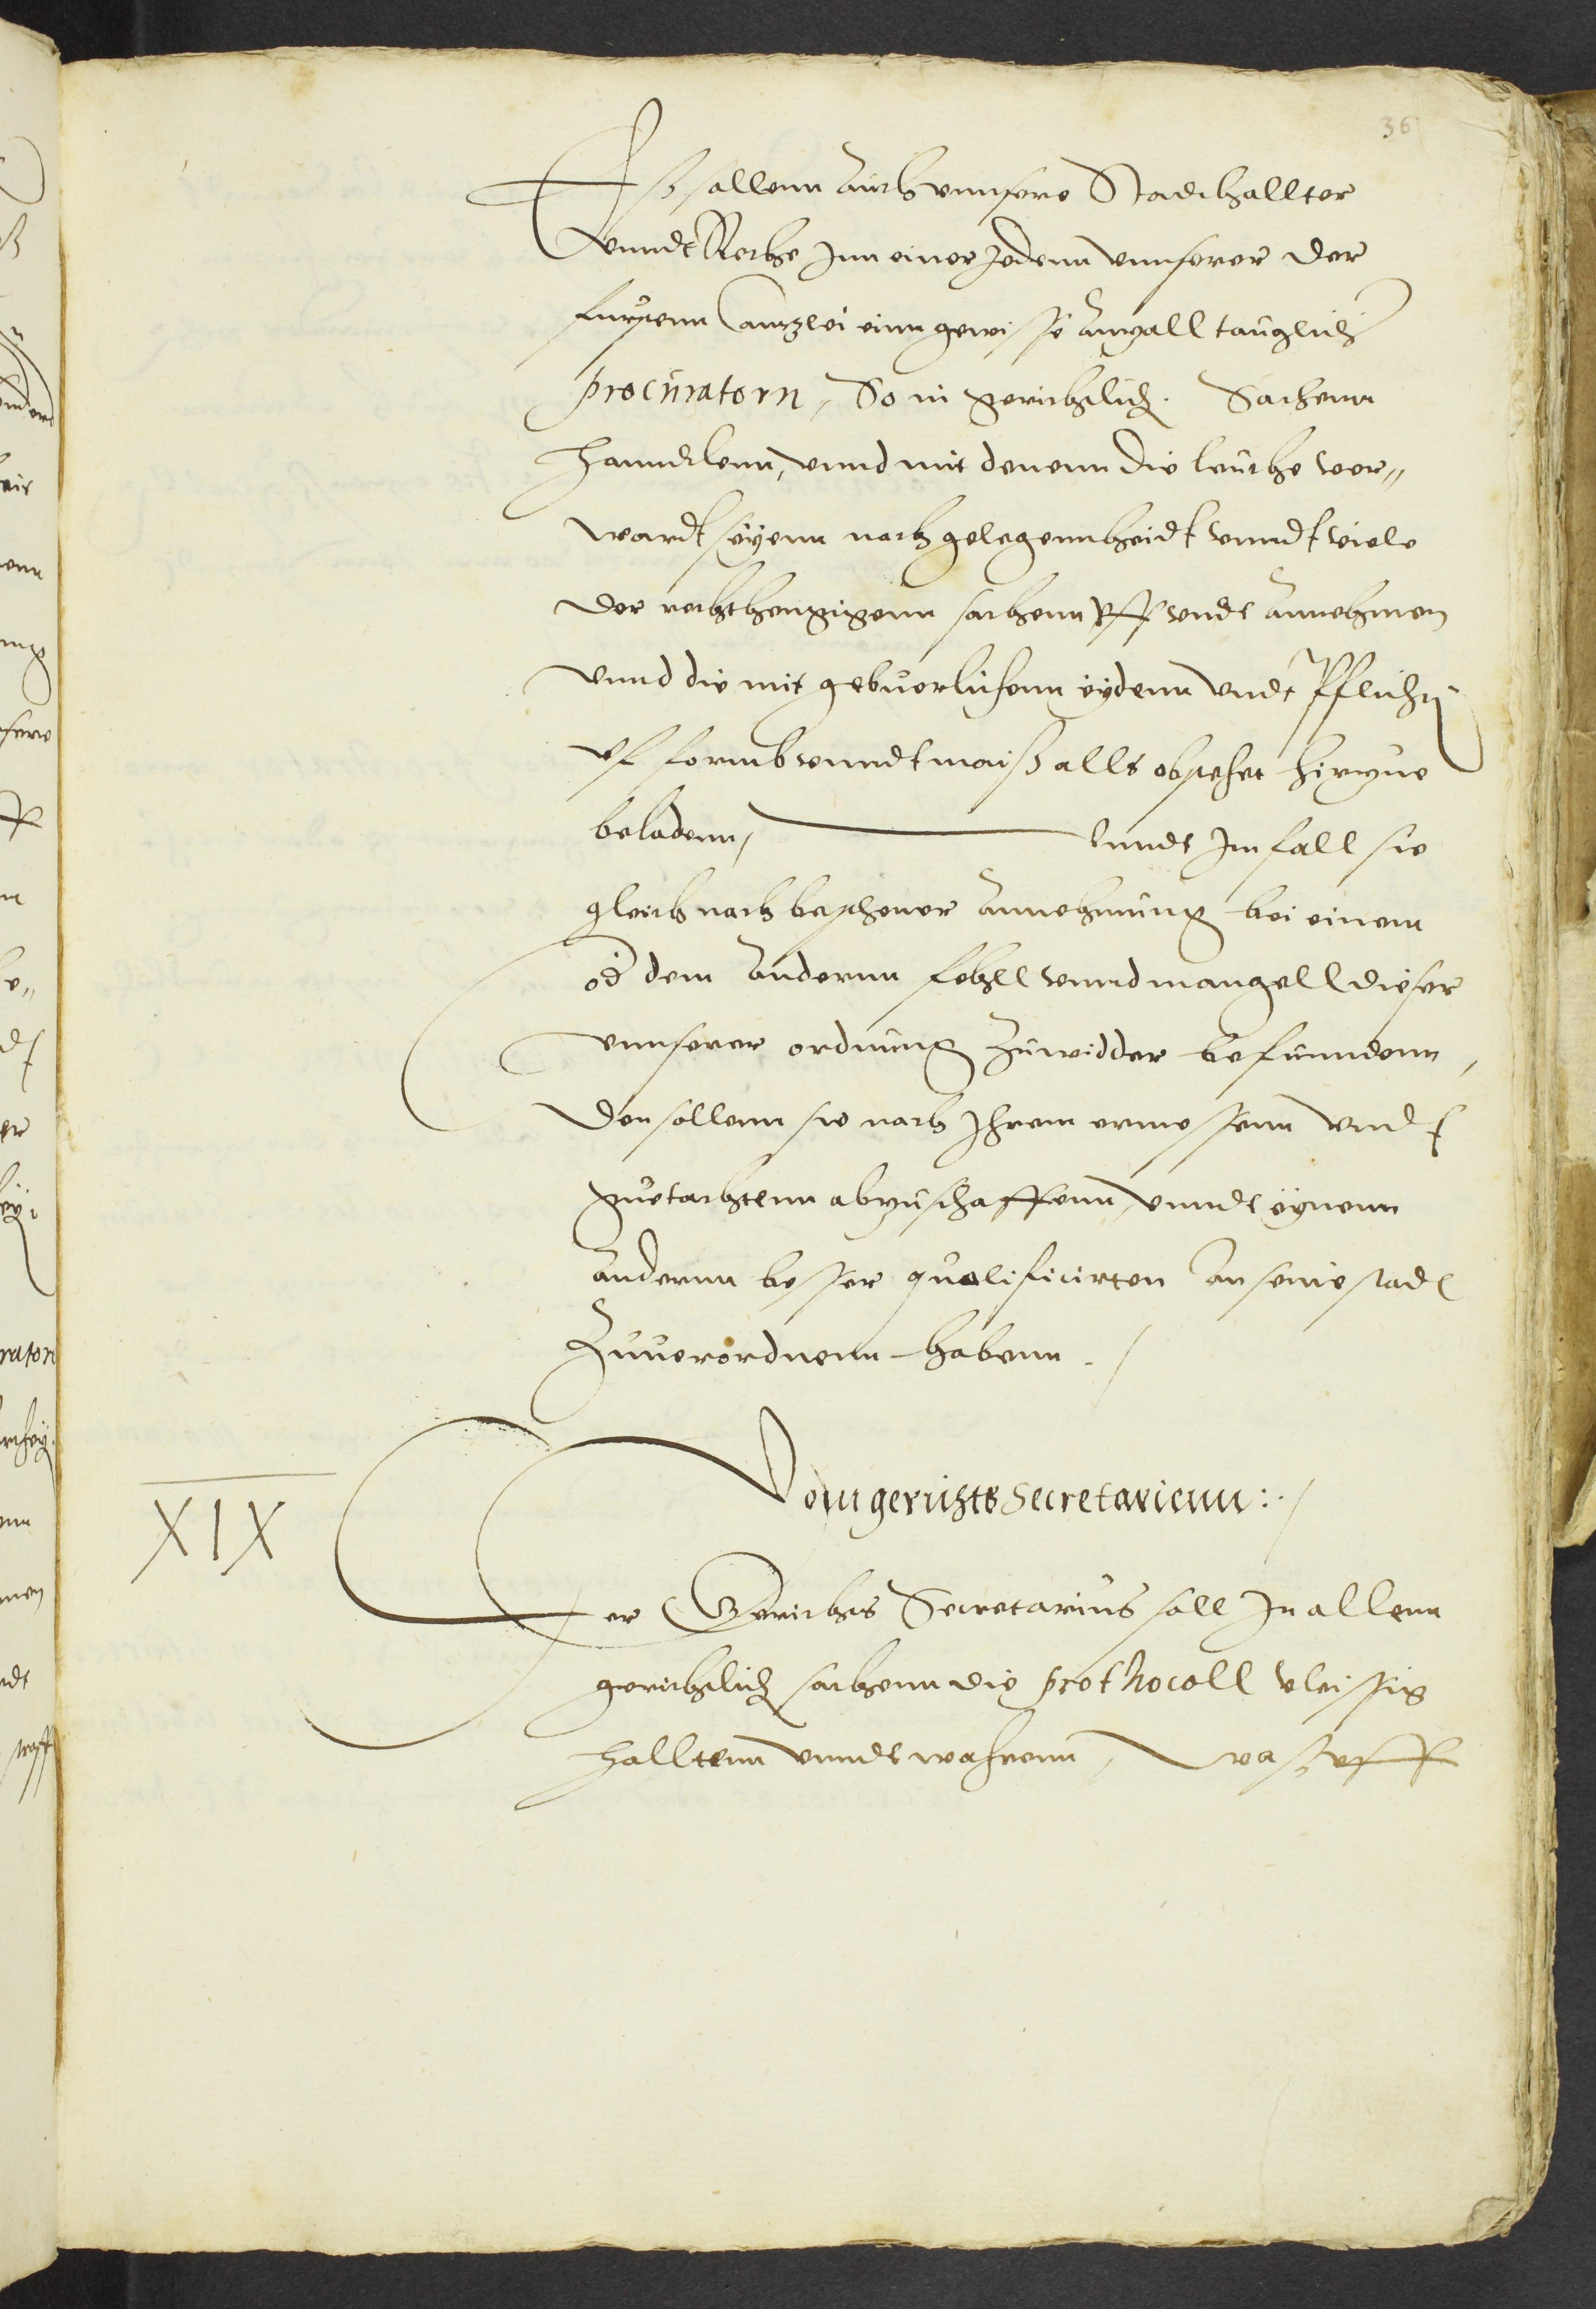 36
Eß sollenn auch vnnsere Stadthallter
vnndt Rethe Inn einer Jedenn vnnserer der
fursten Cantzlei einn gewisse antzall tauglich
procuratorn, So in gerichtlich. Sachenn
hanndlenn, vnnd mit denenn die leuthe ver„
wardt seyenn nach gelegennheidt vnndt viele
der rechthengigenn sachenn vff vndt annehmen
vnnd die mit gebuerlichenn eydenn vndt Pflichtn
vf formb vnndt maiß alls obstehet hirzue
beladenn, vnndt Im fall sie
gleich nach beschener annehmung bei einem
od dem andernn fehll vnnd mangell dieser
vnnserer ordnung zuwidder befunndenn,
den sollenn sie nach Ihrem ermessenn vndt
guetachtenn abzuschaffenn, vnndt eynenn
andernn besser qualificirten an seine stadt
Zuuerordnenn habenn.
Vom gerichts Secretarienn:
XIX
Der Gerichts Secretarius soll In allenn
gerichtlich sachenn die prothocoll vleissig
halltenn vnndt wahrenn, waß vff